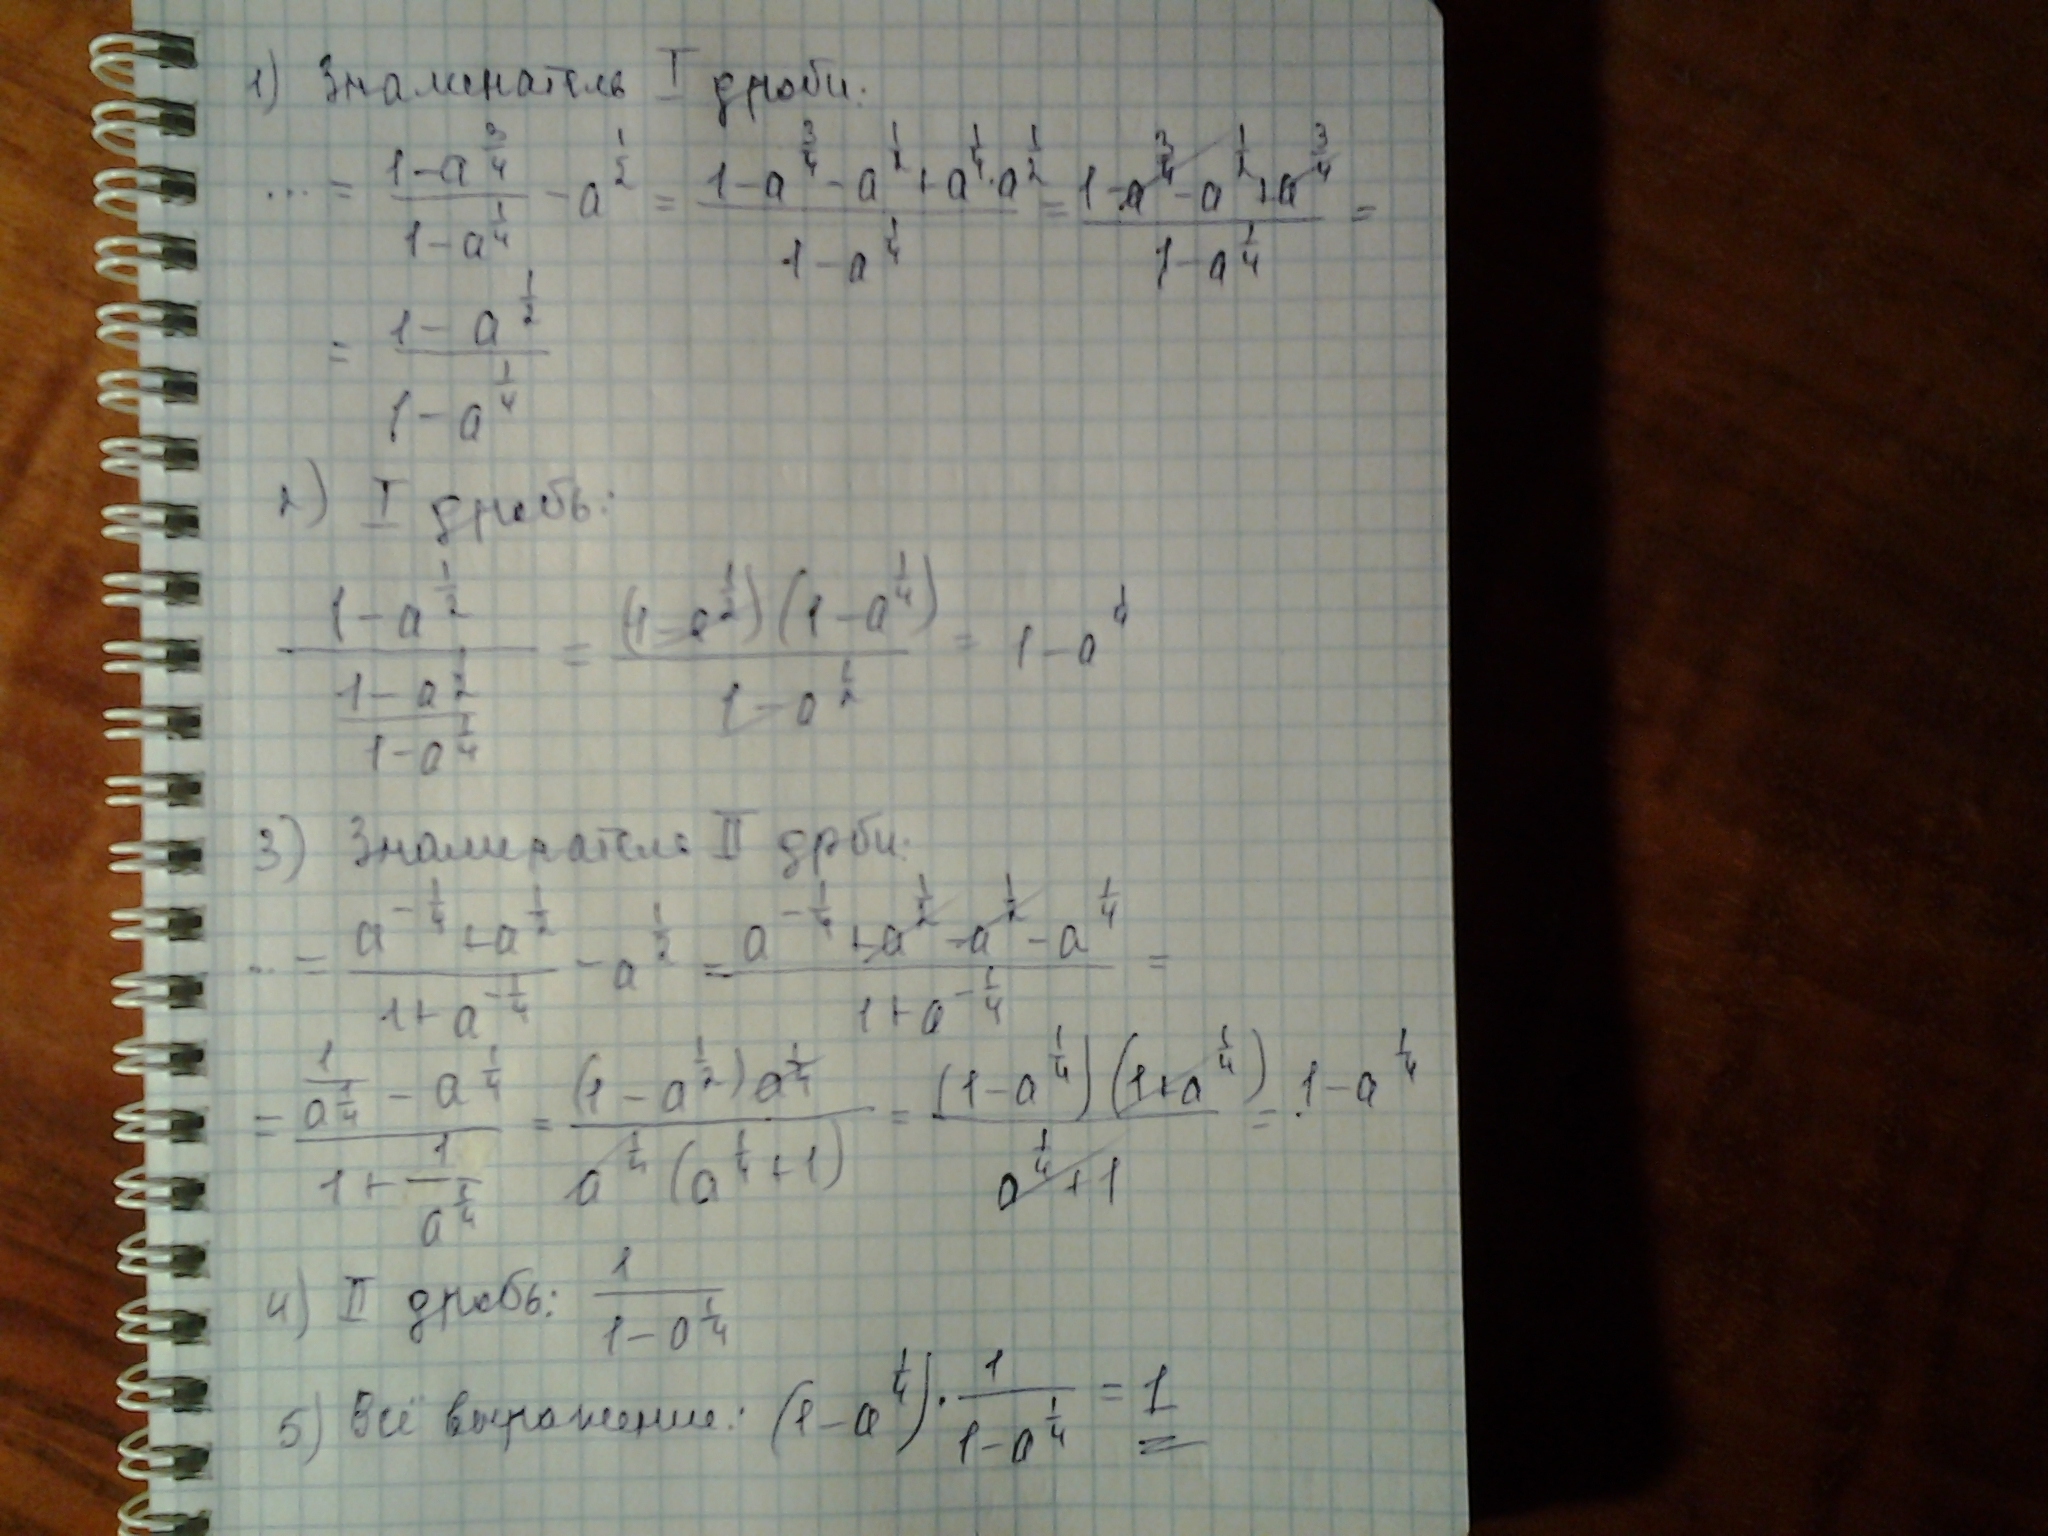 1) Знаменатель I дроби:
... = \frac{1-a^{\frac{3}{4}}}{1-a^{\frac{1}{4}}} - a^{\frac{1}{2}} = \frac{1-a^{\frac{3}{4}}-a^{\frac{1}{2}}+a^{\frac{1}{4}}·a^{\frac{1}{2}}}{1-a^{\frac{1}{4}}} = \frac{1-a^{\frac{3}{4}}-a^{\frac{1}{2}}+a^{\frac{3}{4}}}{1-a^{\frac{1}{4}}} =
= \frac{1-a^{\frac{1}{2}}}{1-a^{\frac{1}{4}}}
2) I дробь:
\frac{1-a^{\frac{1}{2}}}{\frac{1-a^{\frac{1}{2}}}{1-a^{\frac{1}{4}}}} = \frac{(1-a^{\frac{1}{2}})(1-a^{\frac{1}{4}})}{1-a^{\frac{1}{2}}} = 1-a^{\frac{1}{4}}
3) Знаменатель II дрби:
... = \frac{a^{-\frac{1}{4}}+a^{\frac{1}{2}}}{1+a^{-\frac{1}{4}}} - a^{\frac{1}{2}} = \frac{a^{-\frac{1}{4}}+a^{\frac{1}{2}}-a^{\frac{1}{2}}-a^{\frac{1}{4}}}{1+a^{-\frac{1}{4}}} =
= \frac{\frac{1}{a^{\frac{1}{4}}}-a^{\frac{1}{4}}}{1+\frac{1}{a^{\frac{1}{4}}}} = \frac{(1-a^{\frac{1}{2}})a^{\frac{1}{4}}}{a^{\frac{1}{4}}(a^{\frac{1}{4}}+1)} = \frac{(1-a^{\frac{1}{4}})(1+a^{\frac{1}{4}})}{a^{\frac{1}{4}}+1} = 1-a^{\frac{1}{4}}
4) II дробь: \frac{1}{1-a^{\frac{1}{4}}}
5) Всё выражение: (1-a^{\frac{1}{4}})·\frac{1}{1-a^{\frac{1}{4}}} = 1